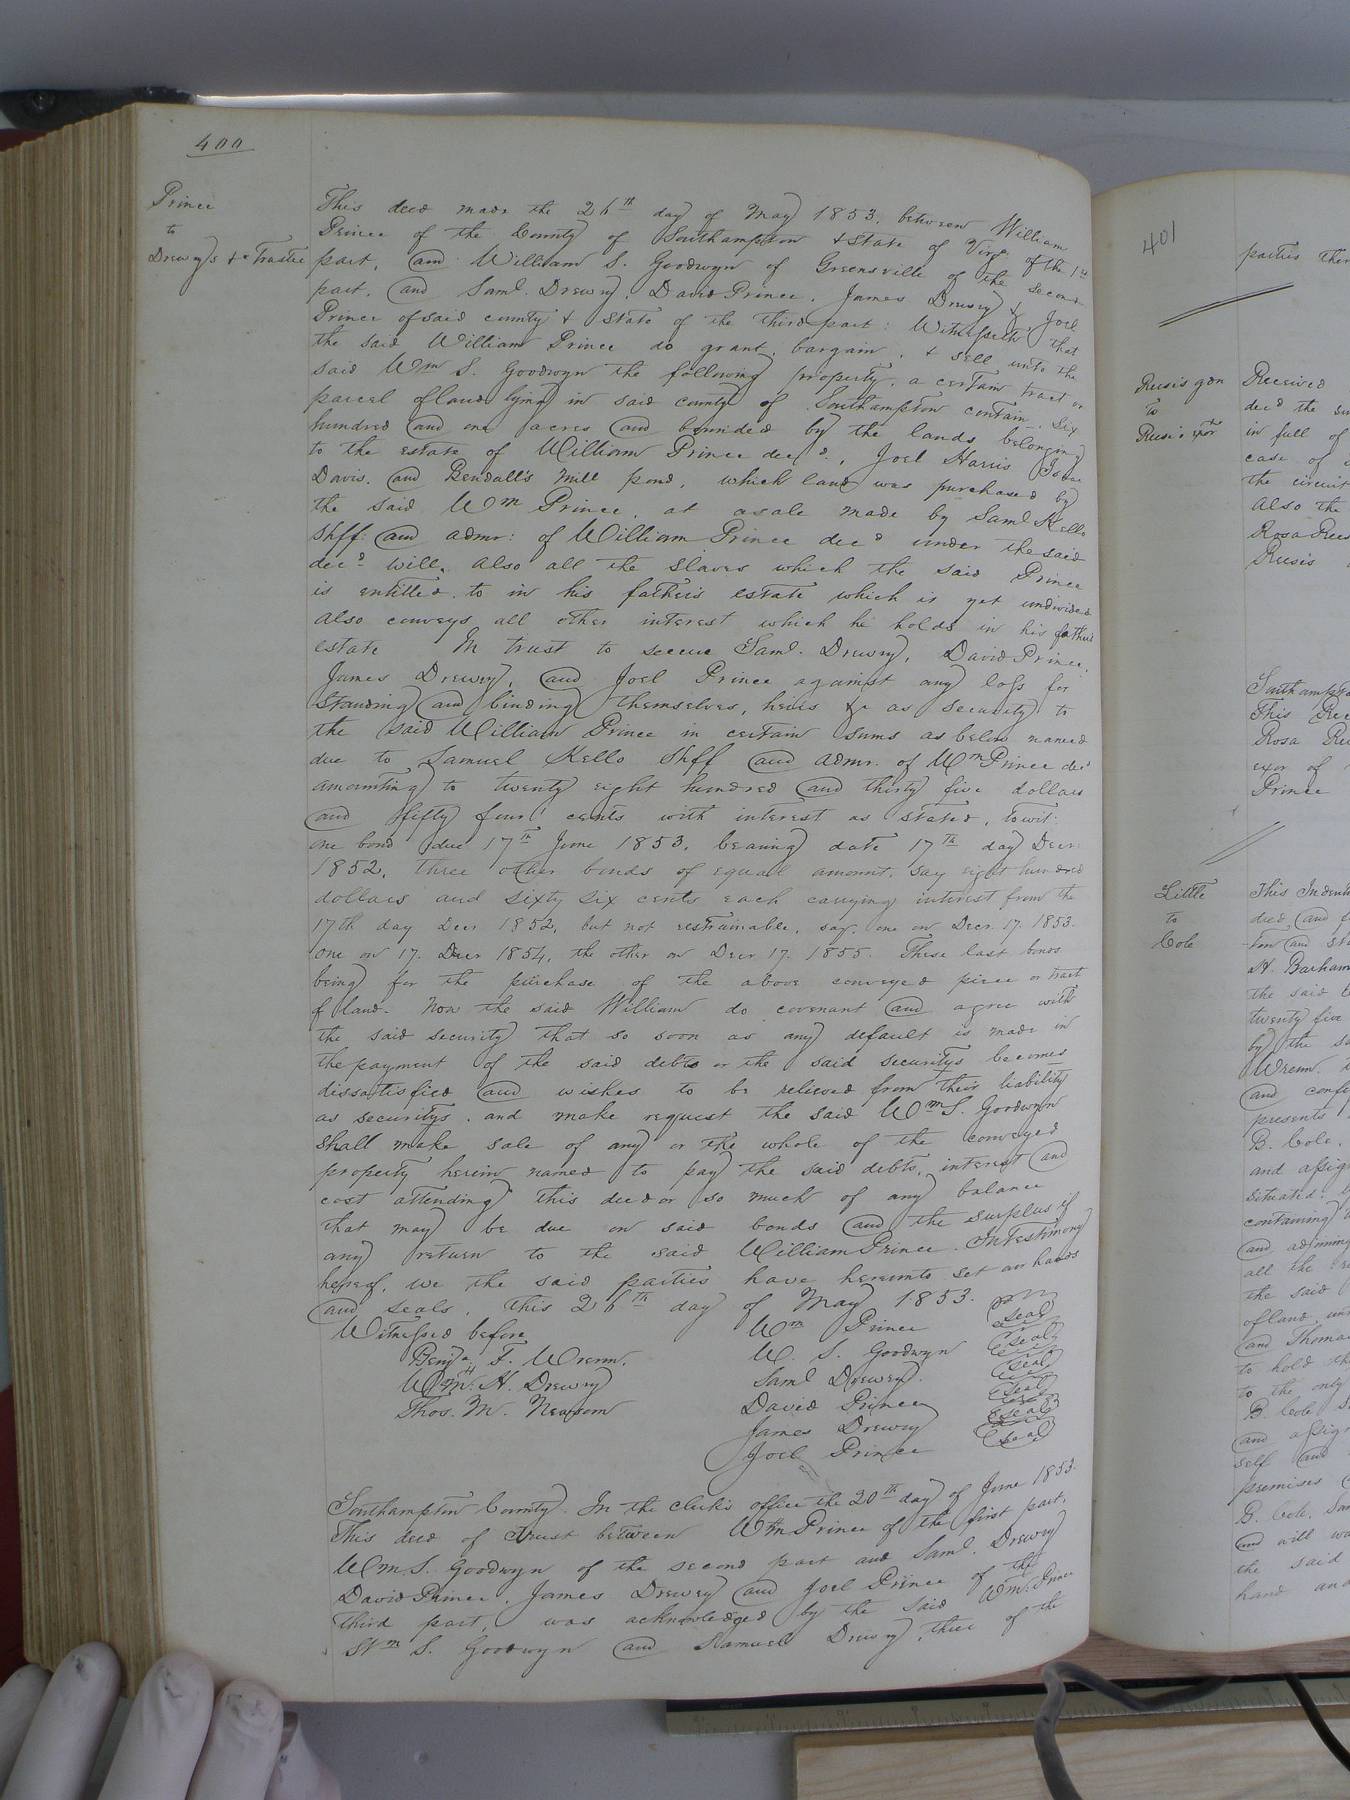 400
Prince
to
Drewrys & Trustee
This deed made the 26th day of May 1853, between William
Prince of the County of Southampton & State of Virga of the 1st
part, and William S. Goodwyn of Greensville of the second
part, and Saml. Drewry, David Prince, James Drewry & Joel
Prince of said county & State of the third part: Witnesseth, that
the said William Prince do grant, bargain, & sell unto the
said Wm S. Goodwyn the following property, a certain tract or
parcel of land lying in said county of Southampton contain. Six
hundred and one acres and bounded by the lands belonging
to the estate of William Prince decd., Joel Harris Isaac
Davis, and Bendall's Mill pond, which land was purchased by
the said Wm Prince, at a sale made by Saml Kello
Shff: and admr: of William Prince decd under the said
decd will. Also all the slaves which the said Prince
is entitled to in his father's estate which is yet undivided
also conveys all other interest which he holds in his father's
estate In trust to secure Saml. Drewry, David Prince,
James Drewry, and Joel Prince against any loss for
standing and binding themselves, heirs &c as security to
the said William Prince in certain sums as below named
due to Samuel Kello Shff and admr. of Wm Prince decd
amounting to twenty eight hundred and thirty five dollars
and fifty four cents with interest as stated, towit:
one bond due 17th June 1853, bearing date 17th day Decr.
1852, three other bonds of equal amount, say eight hundred
dollars and sixty six cents each carrying interest from the
17th day Decr 1852, but not restrainable, say, one on Decr. 17. 1853.
One on 17. Decr 1854, the other on Decr 17. 1855. These last bonds
being for the purchase of the above conveyed piece or tract
of land. Now the said William do covenant and agree with
the said security that so soon as any default is made in
the payment of the said debts or the said securitys becomes
dissatisfied and wishes to be relieved from their liability
as securitys, and make request the said Wm S. Goodwyn
shall make sale of any or the whole of the conveyed
property herein named to pay the said debts, interest and
cost attending this deed or so much of any balance
that may be due on said bonds and the surplus if
any return to the said William Prince. In Testimony
hereof, we the said parties have hereunto set our hands
and seals, this 26th day of May 1853.
Witnessed before Wm Prince seal
Benja F. Wrenn. W. S. Goodwyn seal
Wm. H. Drewry Saml Drewry. seal
Thos. M. Newsom David Prince seal
James Drewry seal
Joel Prince seal
Southampton County. In the clerk's office the 20th day of June 1853.
This deed of Trust between Wm Prince of the first part,
Wm S. Goodwyn of the second part and Saml. Drewry
David Prince, James Drewry and Joel Prince of the
third part, was acknowledged by the said Wm. Prince
Wm S. Goodwyn and Samuel Drewry, three of the
401
parties ther
Reese's gdn
to
Reese's exor
Received
decd the su
in full of
case of
the circuit
also the
Rosa Rees
Reese's
Southampto
This Rec
Rosa Re
exor of
Prince
Little
to
Cole
This Indent
deed and
ton and sta
H. Barham
the said
twenty five
by the sa
Wrenn.
and confi
presents
B. Cole.
and assig
situated:
containing
and adjoining
all the
the said
of land, un
and Thoma
to hold th
to the only
B. Cole
and assign
self and
premises
B. Cole,
and will wa
the said
hand and